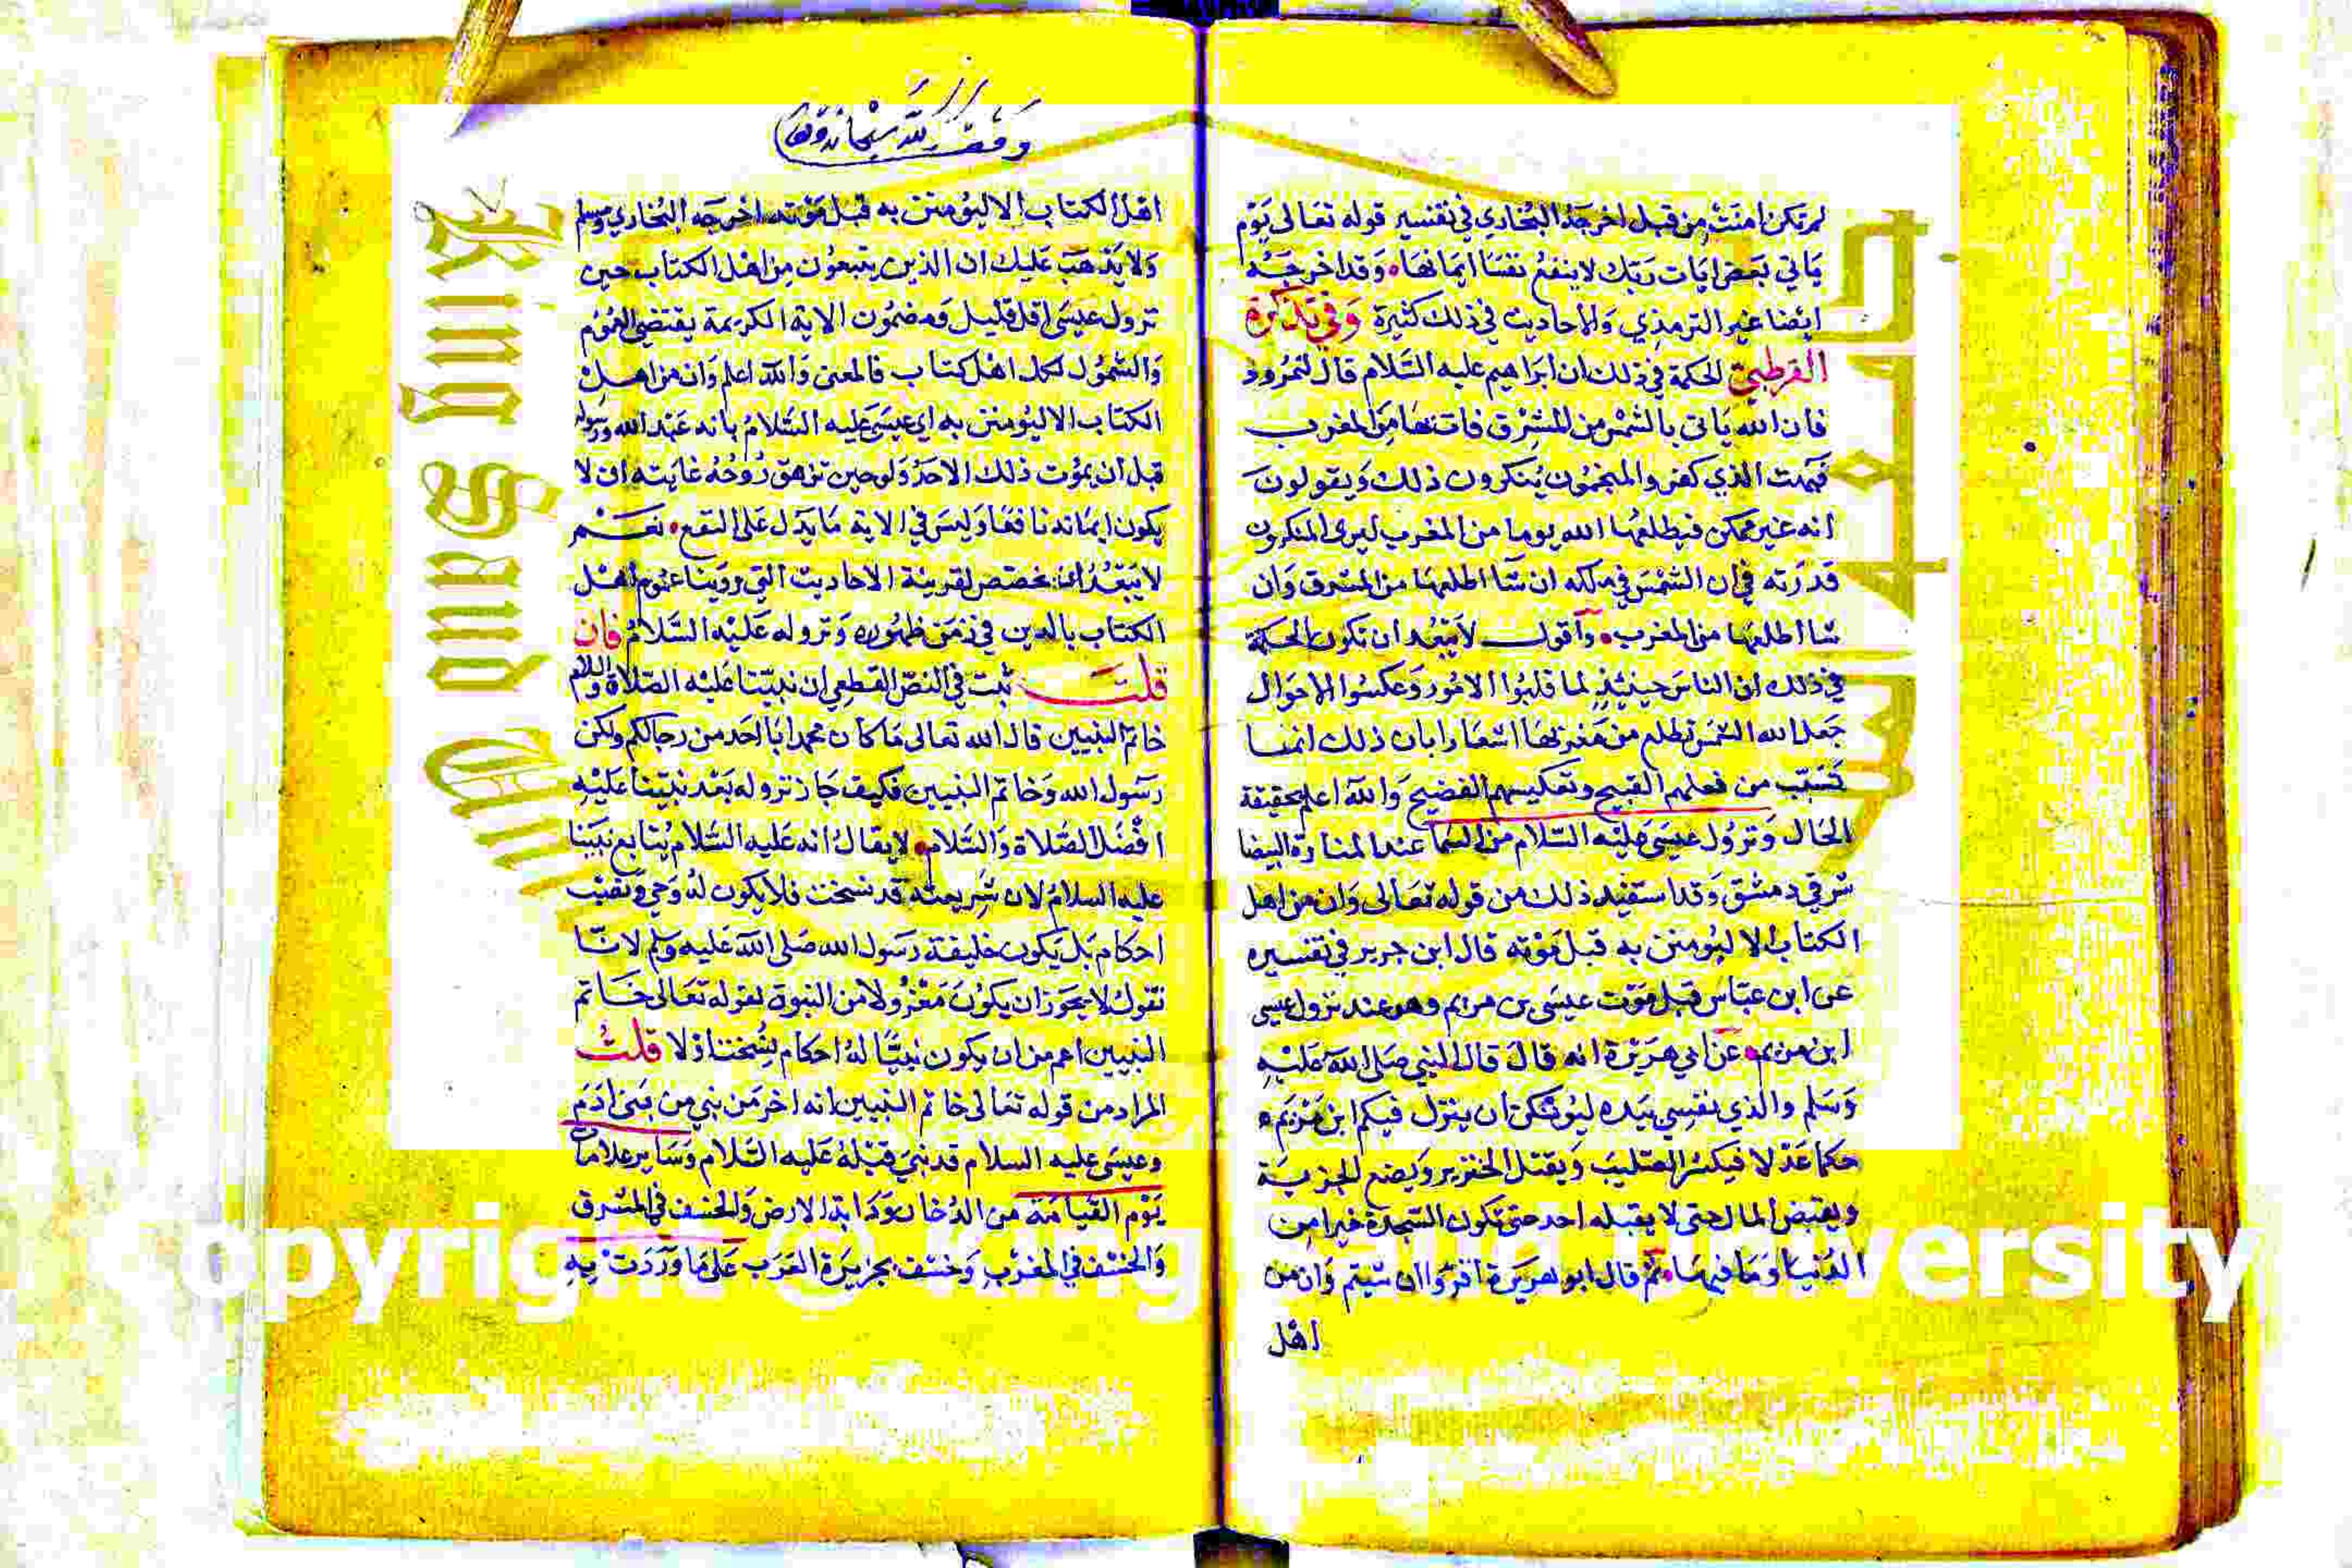 لم تكن امنت من قبل اخرجه البخاري في تفسير قوله تعالى يوم
ياتي بعض ايات ربك لا ينفع نفسا ايمانها وقد اخرجه
ايضا غير الترمذي والاحاديث في ذلك كثيرة وفي تذكرة
القرطبي الحكمة في ذلك ان ابراهيم عليه السلام قال لنمرود
فان الله ياتي بالشمس من المشرق فات بها من المغرب
فبهت الذي كفر والمنجمون ينكرون ذلك ويقولون
انه غير ممكن فيطلعها الله يوما من المغرب ليرى المنكرون
قدرته في ان الشمس في ملكه ان شا اطلعها من المشرق وان
شا اطلعها من المغرب واقول لا يبعد ان تكون الحكمة
في ذلك ان الناس حينئذ لما قلبوا الامور وعكسوا الاحوال
جعل الله الشمس تطلع من مغربها اشعارا بان ذلك انما
تسبب من فعلهم القبيح وتعكيسهم الفضيح والله اعلم بحقيقة
الحال ونزول عيسى عليه السلام من السما عند المنارة البيضا
شرقي دمشق وقد استفيد ذلك من قوله تعالى وان من اهل
الكتاب الا ليؤمنن به قبل موته قال ابن جرير في تفسيره
عن ابن عباس قبل موت عيسى بن مريم وهو عند نزول عيسى
ابن مريم عن ابي هريرة انه قال قال النبي صلى الله عليه
وسلم والذي نفسي بيده ليوشكن ان ينزل فيكم ابن مريم
حكما عدلا فيكسر الصليب ويقتل الخنزير ويضع الجزية
ويفيض المال حتى لا يقبله احد حتى تكون السجدة خيرا من
الدنيا وما فيها ثم قال ابو هريرة اقروا ان شيتم وان من
اهل
وقف لله سبحانه وتعالى
اهل الكتاب الا ليؤمنن به قبل موته اخرجه البخاري ومسلم
ولا يذهب عليك ان الذين يتبعون من اهل الكتاب حين
نزول عيسى اقل قليل ومضمون الاية الكريمة يقتضي العموم
والشمول لكل اهل كتاب فالمعنى والله اعلم وان من اهل
الكتاب الا ليؤمنن به اي عيسى عليه السلام بانه عبد الله ورسوله
قبل ان يموت ذلك الاحد ولو حين تزهق روحه غايته ان لا
يكون ايمانه نافعا وليس في الاية ما يدل على النفع نعم
لا يبعد ان يخصص لقرينة الاحاديث التي روينا عموم اهل
الكتاب بالذين في زمن ظهوره ونزوله عليه السلام فان
قلت ثبت في النص القطعي ان نبينا عليه الصلاة والسلام
خاتم النبيين قال الله تعالى ما كان محمد ابا احد من رجالكم ولكن
رسول الله وخاتم النبيين فكيف جاز نزوله بعد نبينا عليه
افضل الصلاة والسلام لا يقال انه عليه السلام يتابع نبينا
عليه السلام لان شريعته قد نسخت فلا يكون له وحي ونصب
احكام بل يكون خليفة رسول الله صلى الله عليه وسلم لانا
نقول لا يجوز ان يكون معزولا من النبوة لقوله تعالى خاتم
النبيين اعم من ان يكون نبيا له احكام نسخت او لا قلت
المراد من قوله تعالى خاتم النبيين انه اخر من نبي من بني ادم
وعيسى عليه السلام قد نبي قبله عليه السلام وساير علامات
يوم القيامة من الدخان ودابة الارض والخسف في المشرق
والخسف في المغرب وخسف بجزيرة العرب على ما وردت به
King Saud University
جامعة الملك سعود
Copyright © King Saud University